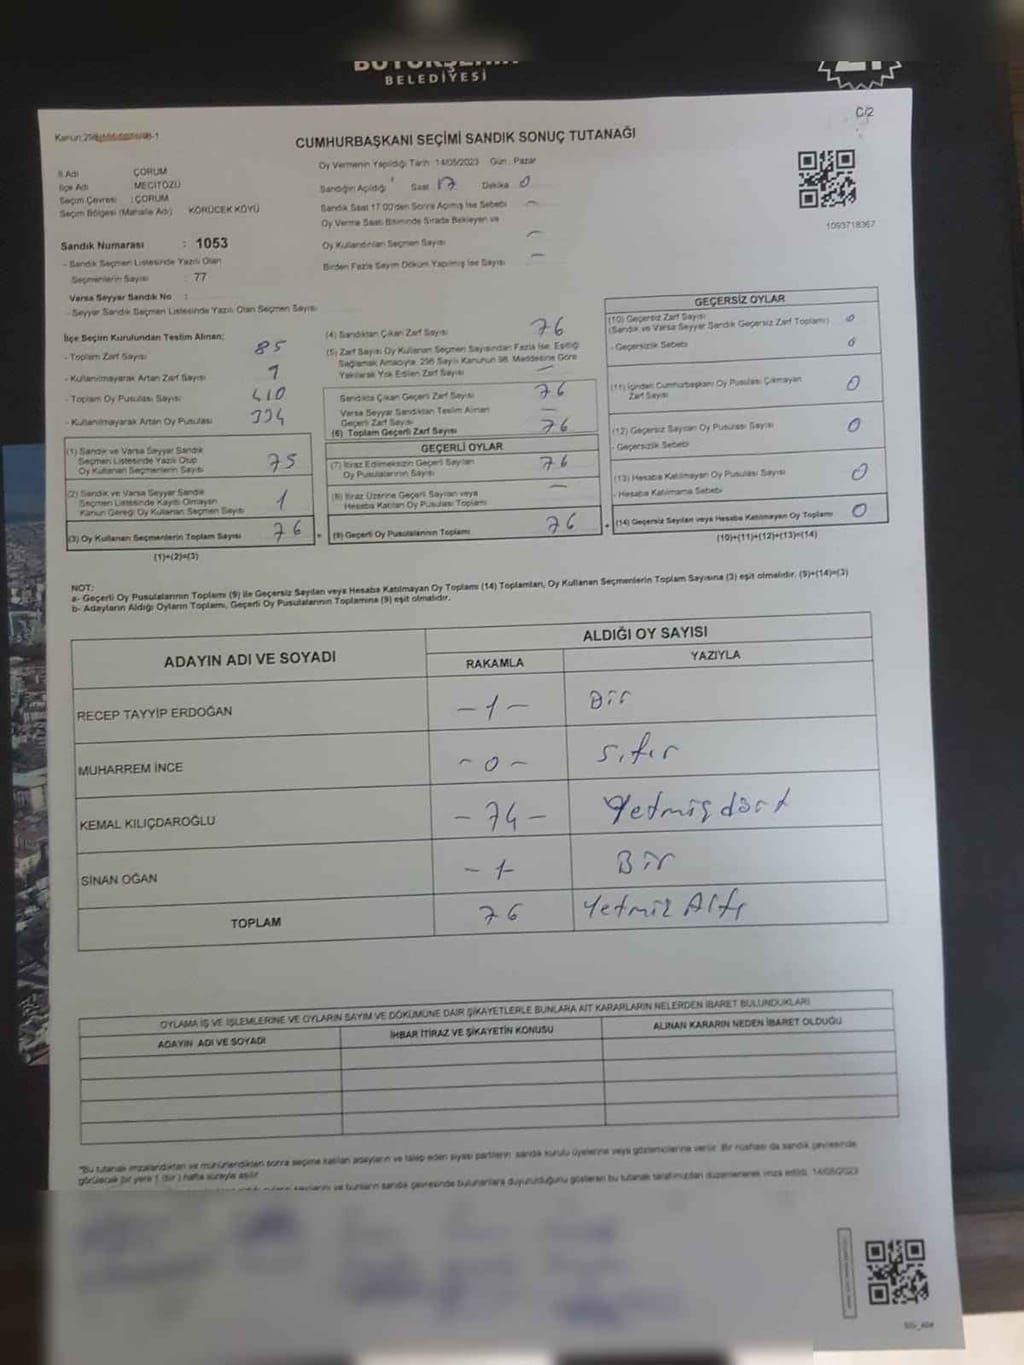 BÜYÜKŞEHİR
BELEDİYESİ
C/2
CUMHURBAŞKANI SEÇİMİ SANDIK SONUÇ TUTANAĞI
İl Adı ÇORUM
İlçe Adı :MECİTÖZÜ
Seçim Çevresi :ÇORUM
Seçim Bölgesi (Mahalle Adı) KÖRÜCEK KÖYÜ
Sandık Numarası : 1053
- Sandık Seçmen Listesinde Yazılı Olan
Seçmenlerin Sayısı : 77
Varsa Seyyar Sandık No :
- Seyyar Sandık Seçmen Listesinde Yazılı Olan Seçmen Sayısı
Oy Vermenin Yapıldığı Tarih :14/05/2023 Gün : Pazar
Sandığın Açıldığı Saat 17 Dakika 0
Sandık Saat 17.00'den Sonra Açılmış İse Sebebi —
Oy Verme Saati Bitiminde Sırada Bekleyen ve
Oy Kullandırılan Seçmen Sayısı —
Birden Fazla Sayım Döküm Yapılmış İse Sayısı —
1093718367
İlçe Seçim Kurulundan Teslim Alınan;
- Toplam Zarf Sayısı 85
- Kullanılmayarak Artan Zarf Sayısı 9
- Toplam Oy Pusulası Sayısı 410
- Kullanılmayarak Artan Oy Pusulası 334
(1) Sandık ve Varsa Seyyar Sandık
Seçmen Listesinde Yazılı Olup
Oy Kullanan Seçmenlerin Sayısı 75
(2) Sandık ve Varsa Seyyar Sandık
Seçmen Listesinde Kayıtlı Olmayan
Kanun Gereği Oy Kullanan Seçmen Sayısı 1
(3) Oy Kullanan Seçmenlerin Toplam Sayısı 76
(1)+(2)=(3)
(4) Sandıktan Çıkan Zarf Sayısı 76
(5) Zarf Sayısı Oy Kullanan Seçmen Sayısından Fazla İse, Eşitliği
Sağlamak Amacıyla, 298 Sayılı Kanunun 98. Maddesine Göre
Yakılarak Yok Edilen Zarf Sayısı —
Sandıkta Çıkan Geçerli Zarf Sayısı 76
Varsa Seyyar Sandıktan Teslim Alınan
Geçerli Zarf Sayısı —
(6) Toplam Geçerli Zarf Sayısı 76
GEÇERLİ OYLAR
(7) İtiraz Edilmeksizin Geçerli Sayılan
Oy Pusulalarının Sayısı 76
(8) İtiraz Üzerine Geçerli Sayılan veya
Hesaba Katılan Oy Pusulası Toplamı —
(9) Geçerli Oy Pusulalarının Toplamı 76
GEÇERSİZ OYLAR
(10) Geçersiz Zarf Sayısı
(Sandık ve Varsa Seyyar Sandık Geçersiz Zarf Toplamı) 0
- Geçersizlik Sebebi 0
(11) İçinden Cumhurbaşkanı Oy Pusulası Çıkmayan
Zarf Sayısı 0
(12) Geçersiz Sayılan Oy Pusulası Sayısı 0
- Geçersizlik Sebebi
(13) Hesaba Katılmayan Oy Pusulası Sayısı 0
- Hesaba Katılmama Sebebi
(14) Geçersiz Sayılan veya Hesaba Katılmayan Oy Toplamı 0
(10)+(11)+(12)+(13)=(14)
NOT:
a- Geçerli Oy Pusulalarının Toplamı (9) ile Geçersiz Sayılan veya Hesaba Katılmayan Oy Toplamı (14) Toplamları, Oy Kullanan Seçmenlerin Toplam Sayısına (3) eşit olmalıdır. (9)+(14)=(3)
b- Adayların Aldığı Oyların Toplamı, Geçerli Oy Pusulalarının Toplamına (9) eşit olmalıdır.
ADAYIN ADI VE SOYADI
ALDIĞI OY SAYISI
RAKAMLA YAZIYLA
RECEP TAYYİP ERDOĞAN – 1 – Bir
MUHARREM İNCE – 0 – Sıfır
KEMAL KILIÇDAROĞLU – 74 – Yetmiş dört
SİNAN OĞAN – 1 – Bir
TOPLAM 76 Yetmiş Altı
OYLAMA İŞ VE İŞLEMLERİNE VE OYLARIN SAYIM VE DÖKÜMÜNE DAİR ŞİKAYETLERLE BUNLARA AİT KARARLARIN NELERDEN İBARET BULUNDUKLARI
ADAYIN ADI VE SOYADI İHBAR İTİRAZ VE ŞİKAYETİN KONUSU ALINAN KARARIN NEDEN İBARET OLDUĞU
"Bu tutanak imzalandıktan ve mühürlendikten sonra seçime katılan adayların ve talep eden siyasi partilerin sandık kurulu üyelerine veya gözlemcilerine verilir. Bir nüshası da sandık çevresinde
görülecek bir yere 1 (bir) hafta süreyle asılır.
ve bunların sandık çevresinde bulunanlara duyurulduğunu gösteren bu tutanak tarafımızdan düzenlenerek imza edildi. 14/05/2023